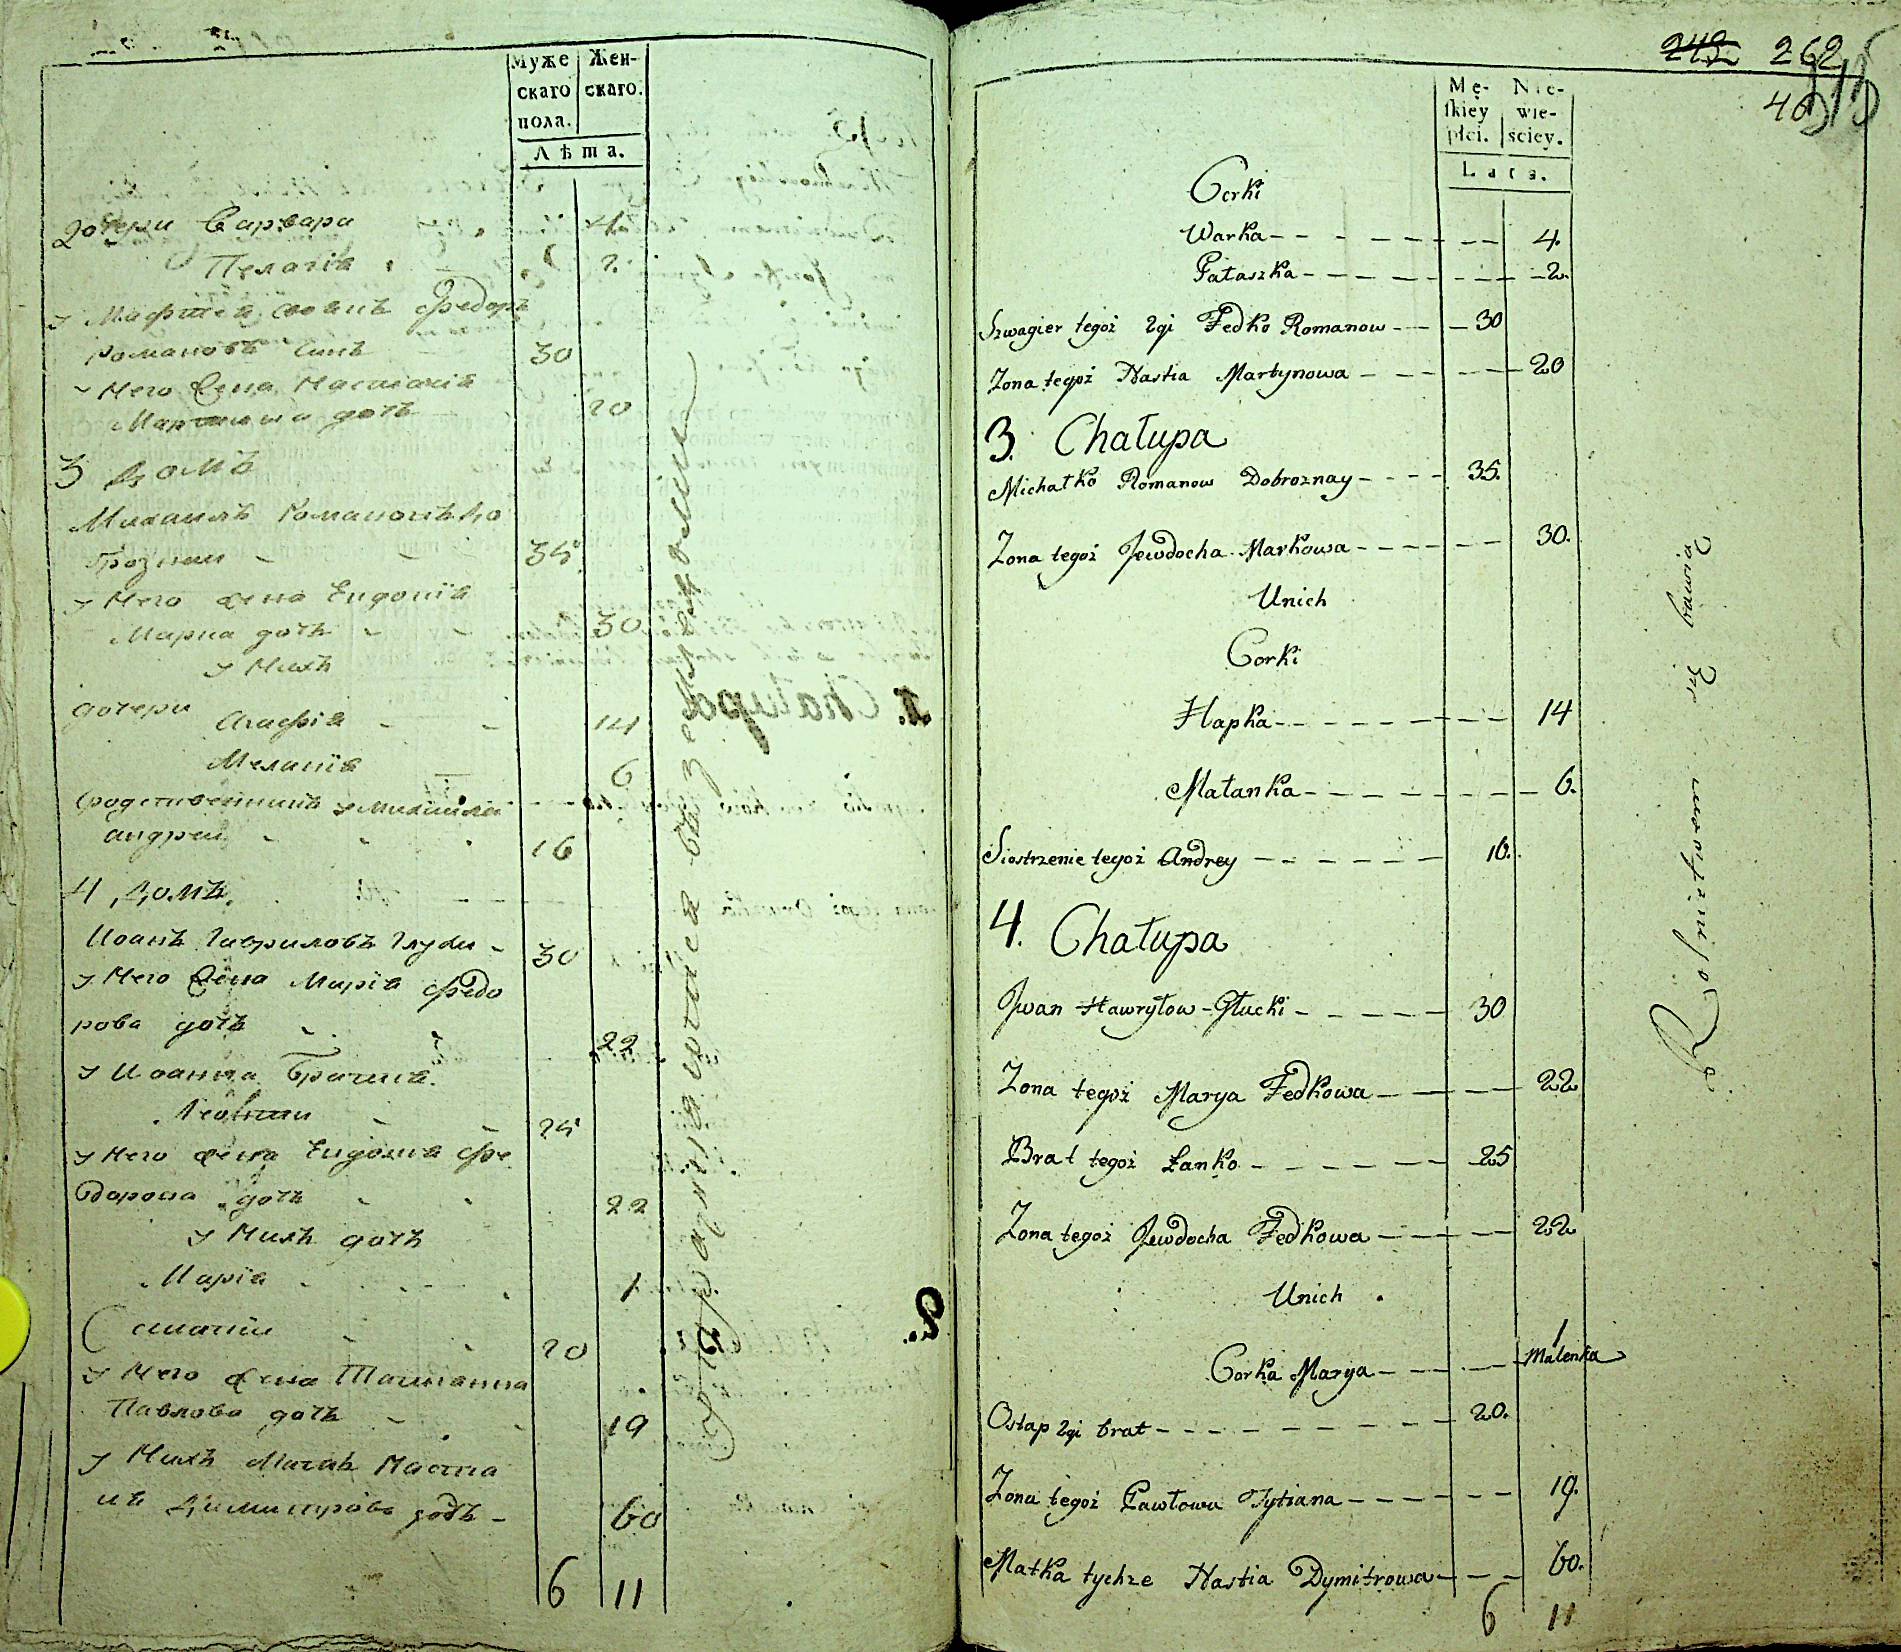 Муже
скаго
пола.
Жен-
скаго.
Лѣта.
дочери Варвара 4
Пелагія 2
у Мафтея своякъ Федоръ
Романовъ синъ 30
у Него жена Настасія
Мартинова дочъ 20
3 домъ
Михаилъ Романовъ До
брознаи 35
у Него жена Евдокія
Марка дочъ 30
у Нихъ
дочери Агафія 14
Меланія 6
сродственникъ у Михаила
андреи 16
4 домъ
Иоанъ Гавриловъ Глуцки 30
у Него жена Марія Федо
рова дочъ 22
у Иоанна Братъ
Леонтии 25
у Него жена Евдокия Фе
дорова дочъ 22
у Нихъ дочъ
Марія 1
Евстафіи 20
у Него жена Татіанна
Павлова дочъ 19
у Нихъ Мать Наста
сія Димитрова дочъ 60
6 11
242 262
Mę-
skiey
płci.
Nie-
wie-
ściey.
Lata.
Corki
Warka 4.
Pałaszka 2.
Szwagier tegoż 2gi Fedko Romanow 30
Zona tegoż Nastia Martynowa 20
3. Chałupa
Michałko Romanow Dobroznay 35.
Zona tegoż Jewdocha Markowa 30.
Unich
Corki
Hapka 14
Małanka 6.
Siostrzenie tegoż Andrey 16.
4. Chałupa
Jwan Hawryłow-Głucki 30
Zona tegoż Marya Fedkowa 22
Brat tegoż Łanko 25
Zona tegoż Jewdocha Fedkowa 22
Unich
Corka Marya 1 Malenka
Ostap 2gi brat 20.
Zona tegoż Pawłowa Tytiana 19.
Matka tychże Nastia Dymitrowa 60.
6 11
Rolnictwem się bawią